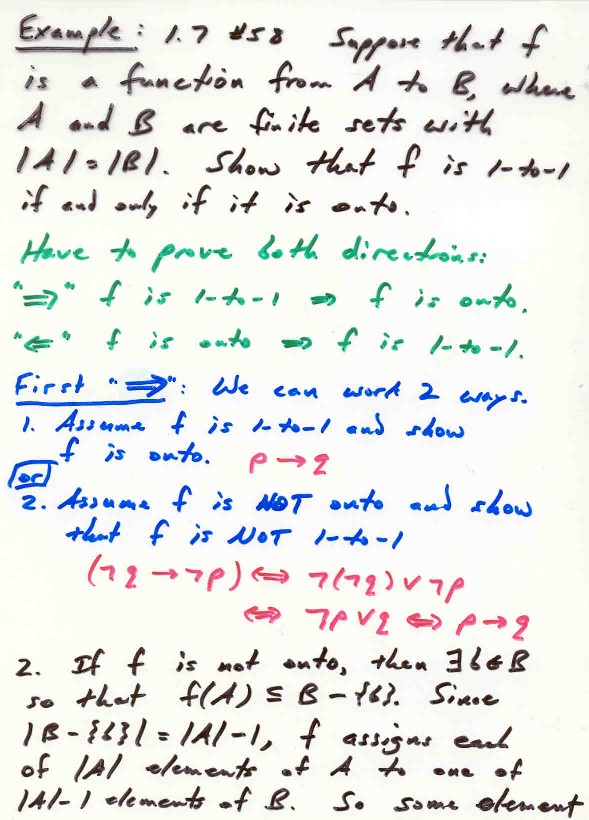 Example: 1.7 #58 Suppose that f
is a function from A to B, where
A and B are finite sets with
|A| = |B|. Show that f is 1-to-1
if and only if it is onto.
Have to prove both directions:
"⇒" f is 1-to-1 ⇒ f is onto.
"⇐" f is onto ⇒ f is 1-to-1.
First "⇒": We can work 2 ways.
1. Assume f is 1-to-1 and show
f is onto. p → q
or
2. Assume f is NOT onto and show
that f is NOT 1-to-1
(¬q → ¬p) ⇔ ¬(¬q) ∨ ¬p
⇔ ¬p ∨ q ⇔ p → q
2. If f is not onto, then ∃ b ∈ B
so that f(A) ⊆ B - {b}. Since
|B - {b}| = |A| - 1, f assigns each
of |A| elements of A to one of
|A| - 1 elements of B. So some element